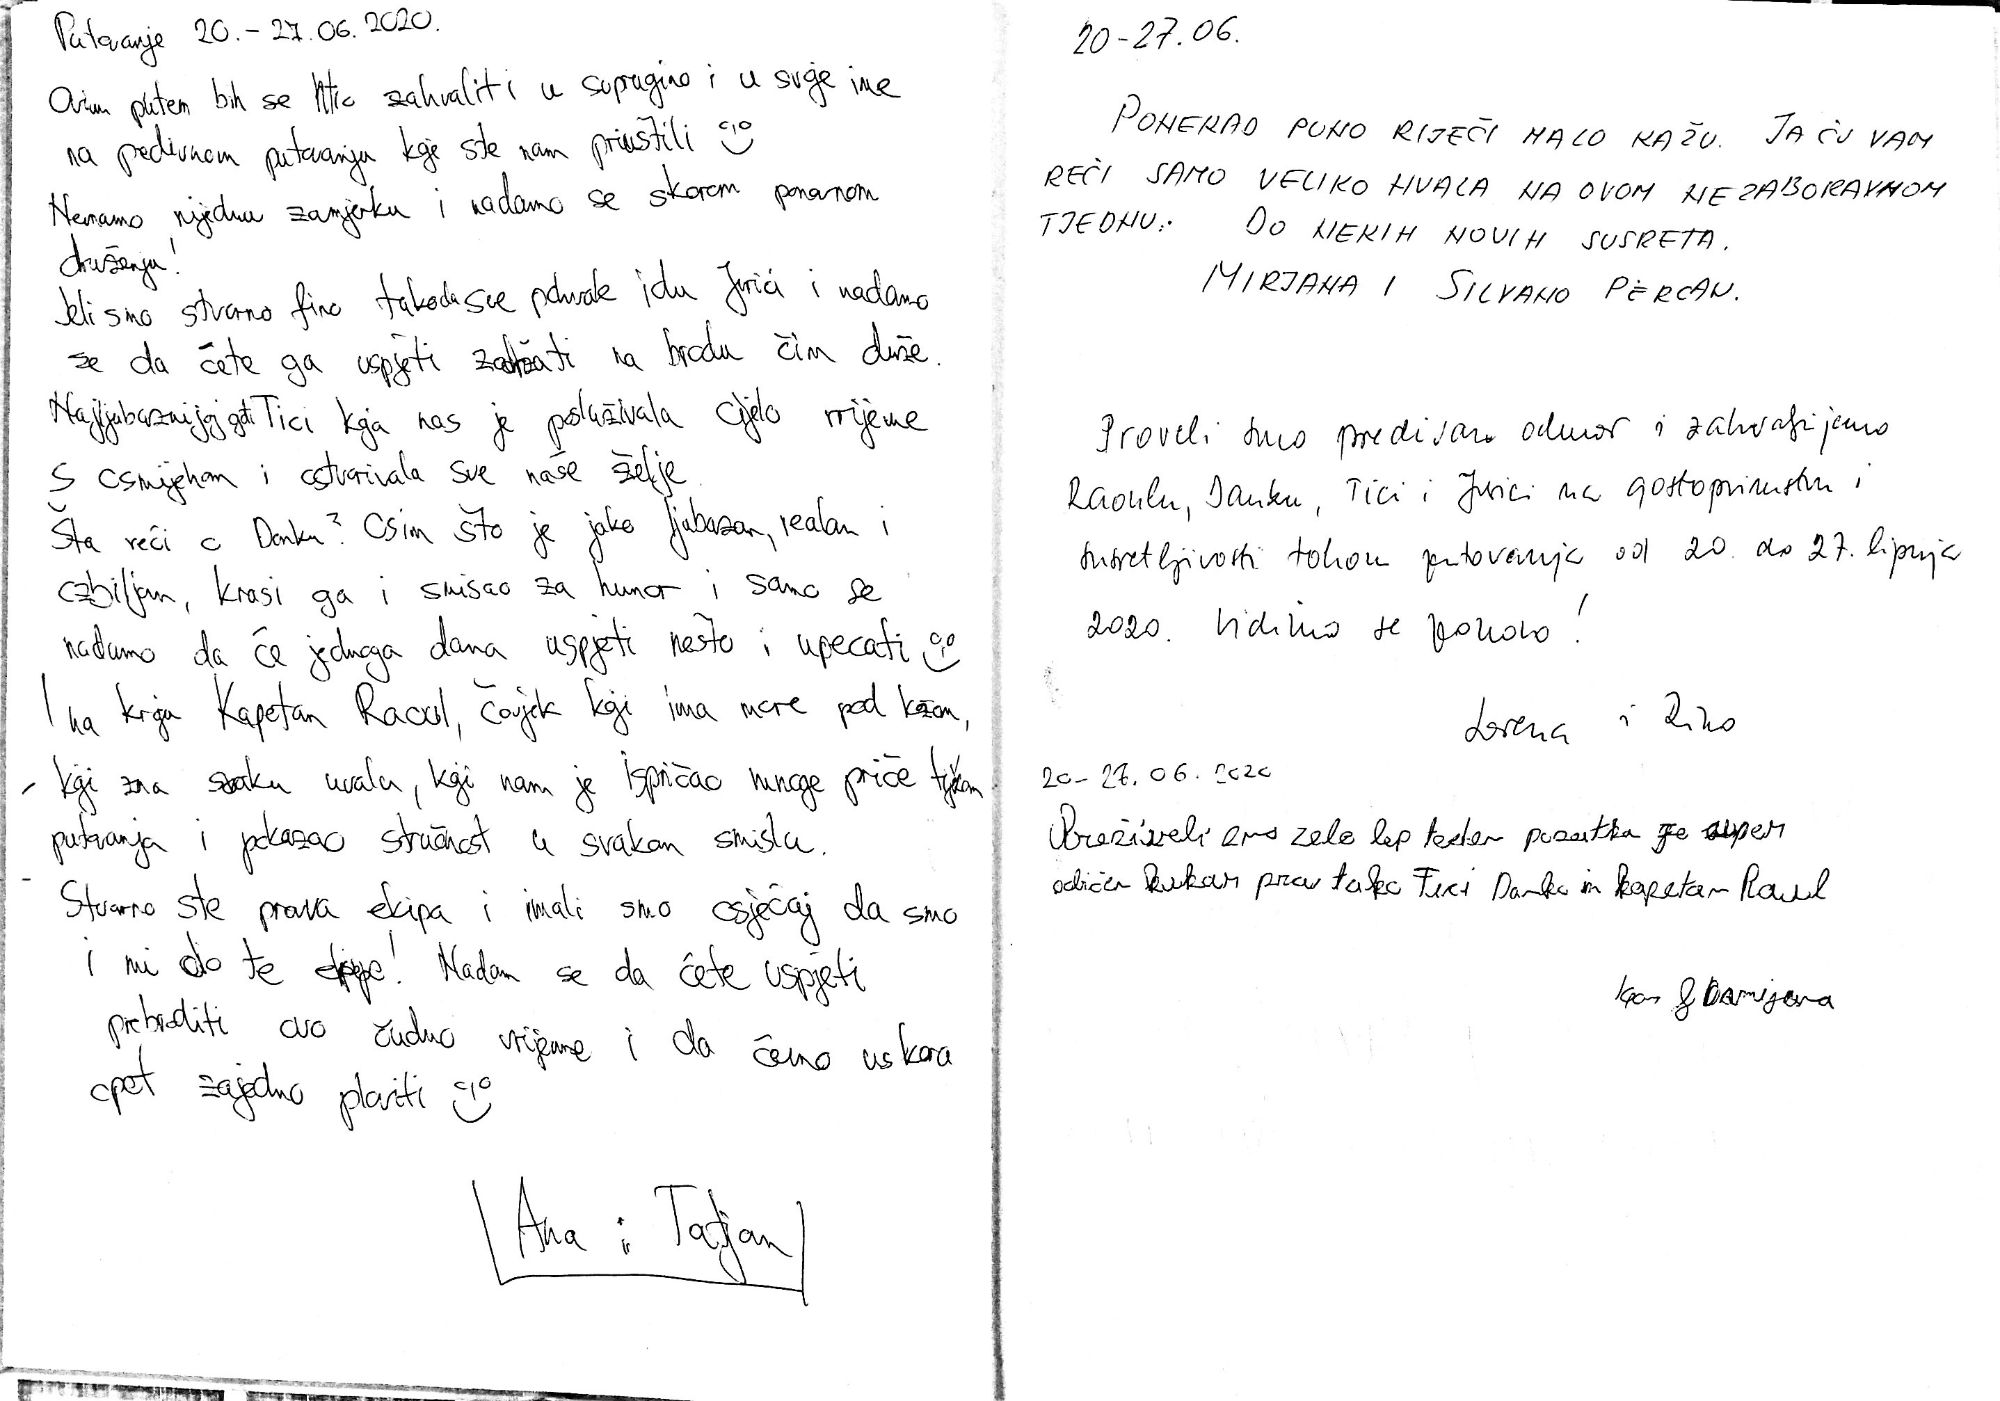 Putovanje 20.-27.06.2020.
Ovim putem bih se htio zahvaliti u suprugino i u svoje ime
na predivnom putovanju koje ste nam priuštili
Nemamo nijednu zamjerku i nadamo se skorom ponovnom
druženju!
Jeli smo stvarno fino tako da sve pohvale idu Jurici i nadamo
se da ćete ga uspjeti zadržati na brodu čim duže.
Najljubaznijoj Tici koja nas je posluživala cijelo vrijeme
s osmijehom i ostvarivala sve naše želje
Šta reći o Danku? Osim što je jako ljubazan, realan i
ozbiljan, krasi ga i smisao za humor i samo se
nadamo da će jednoga dana uspjeti nešto i upecati
I na kraju Kapetan Raoul, čovjek koji ima more pod kožom,
koji zna svaku uvalu, koji nam je ispričao mnoge priče tijekom
putovanja i pokazao stručnost u svakom smislu.
Stvarno ste prava ekipa i imali smo osjećaj da smo
i mi dio te ekipe! Nadam se da ćete uspjeti
prebroditi ovo čudno vrijeme i da ćemo uskoro
opet zajedno ploviti
Ana i Tatjan
20-27.06.
PONEKAD PUNO RIJEČI MALO KAŽU. JA ĆU VAM
REĆI SAMO VELIKO HVALA NA OVOM NEZABORAVNOM
TJEDNU. DO NEKIH NOVIH SUSRETA.
MIRJANA I SILVANO PERCAN.
Proveli smo predivan odmor i zahvaljujemo
Raoulu, Danku, Tici i Jurici na gostoprimstvu i
susretljivosti tokom putovanja od 20. do 27. lipnja
2020. Vidimo se ponovo!
Lorena i Rino
20-27.06.2020
Preživeli smo zelo lep teden posadka je super
odličen kuhar prav tako Tici Danko in kapetan Raoul
Igor & Damijana